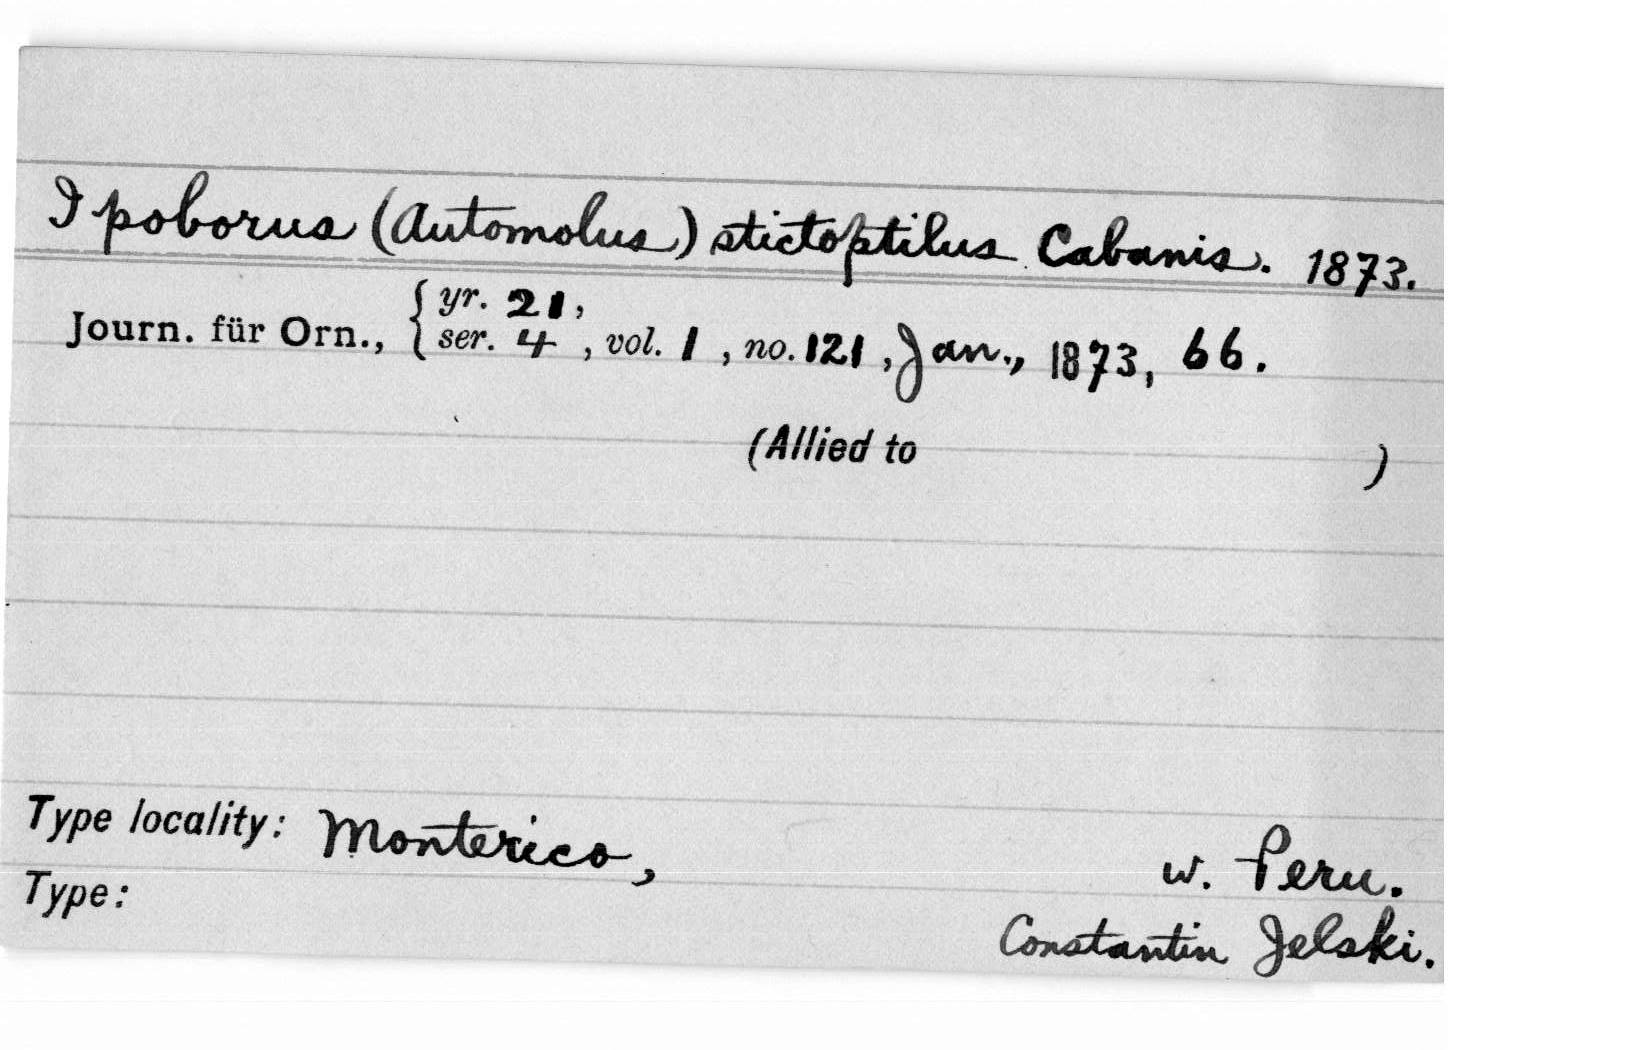 Ipoborus (Automolus) stictoptilus Cabanis. 1873.
Journ. für Orn., { yr. 21,
ser. 4, vol. 1, no. 121, Jan., 1873, 66.
(Allied to )
Type locality: Monterico, w. Peru.
Type: Constantin Jelski.